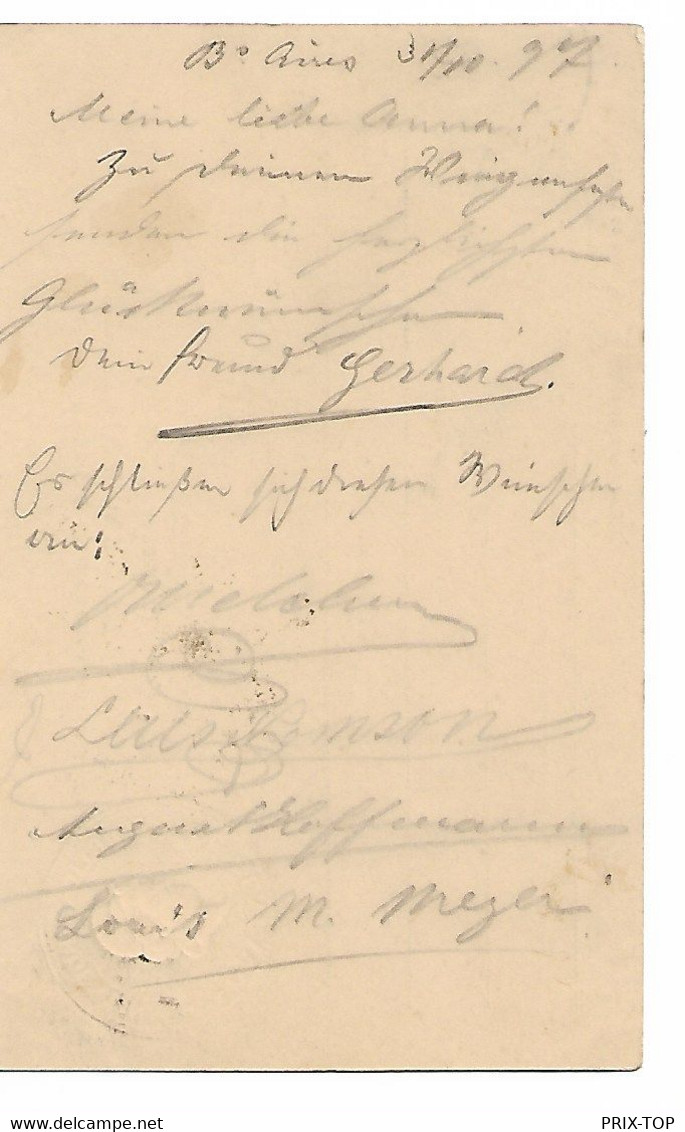 Bs Aires 31/10. 97.
Meine liebe Anna!
Zu Deinem Wiegenfeste
senden die herzlichsten
Glückwünsche
Dein Freund Gerhard.
Es schließen sich diesen Wünschen
an:
Luis Thomson
August Hoffmann
Louis M. Meyer
PRIX-TOP